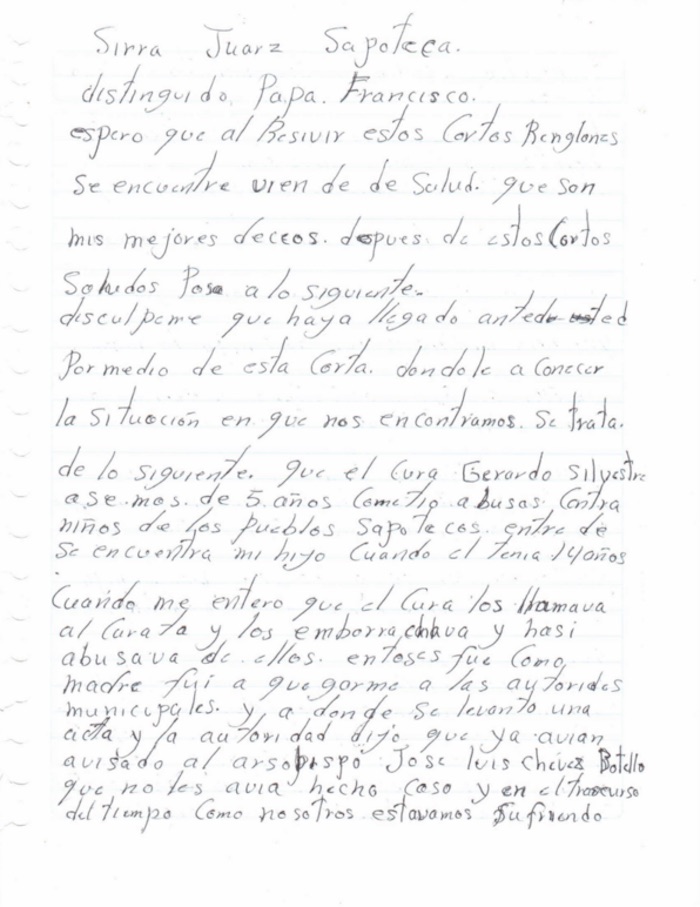 Sirra Juarz Sapoteca.
distinguido. Papa. Francisco.
espero que al Resivir estos Cortos Renglones
Se encuentre vien de de Salud. que son
mis mejores deceos. depues de estos Cortos
Saludos Paso a lo siguiente.
disculpeme que haya llegado antede usted
Por medio de esta Carta. dandole a Conecer
la Situación en que nos encontramos. Se trata.
de lo siguiente. que el Cura Gerardo Silvestre
ase mas. de 5 años Cometio abusos Contra
niños de los Pueblos Sapotecos. entre de
Se encuentra mi hijo Cuando el tenia 14 años
Cuando me entero que el Cura los llamava
al Curato y los emborrachava y hasi
abusava de ellos. entoses fue Como
madre fui a quegarme a las autorides
municipales. y a donde se levanto una
acta y la autoridad dijo que ya avian
avisado al arsobispo Jose luis Chavez Botello
que no les avia hecho Caso y en el trascurso
del tiempo Como nosotros estavamos Sufriendo